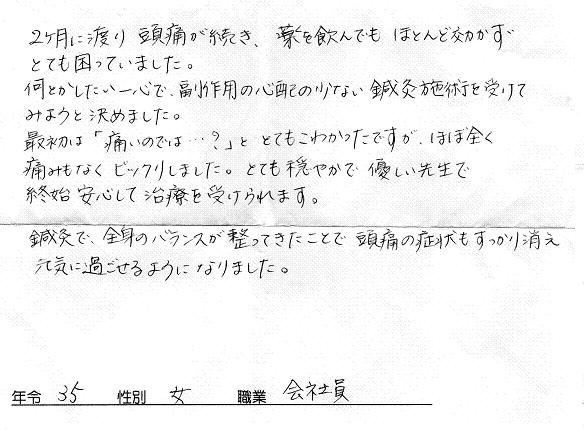 2ヶ月に渡り 頭痛が続き、薬を飲んでも ほとんど効かず
とても困っていました。
何とかしたい一心で、副作用の心配の少ない 鍼灸施術を受けて
みようと決めました。
最初は「痛いのでは…?」と とてもこわかったですが、ほぼ全く
痛みもなく ビックリしました。とても穏やかで 優しい先生で
終始 安心して治療を受けられます。
鍼灸で、全身のバランスが 整ってきたことで 頭痛の症状もすっかり消え
元気に過ごせるようになりました。
年令 35 性別 女 職業 会社員